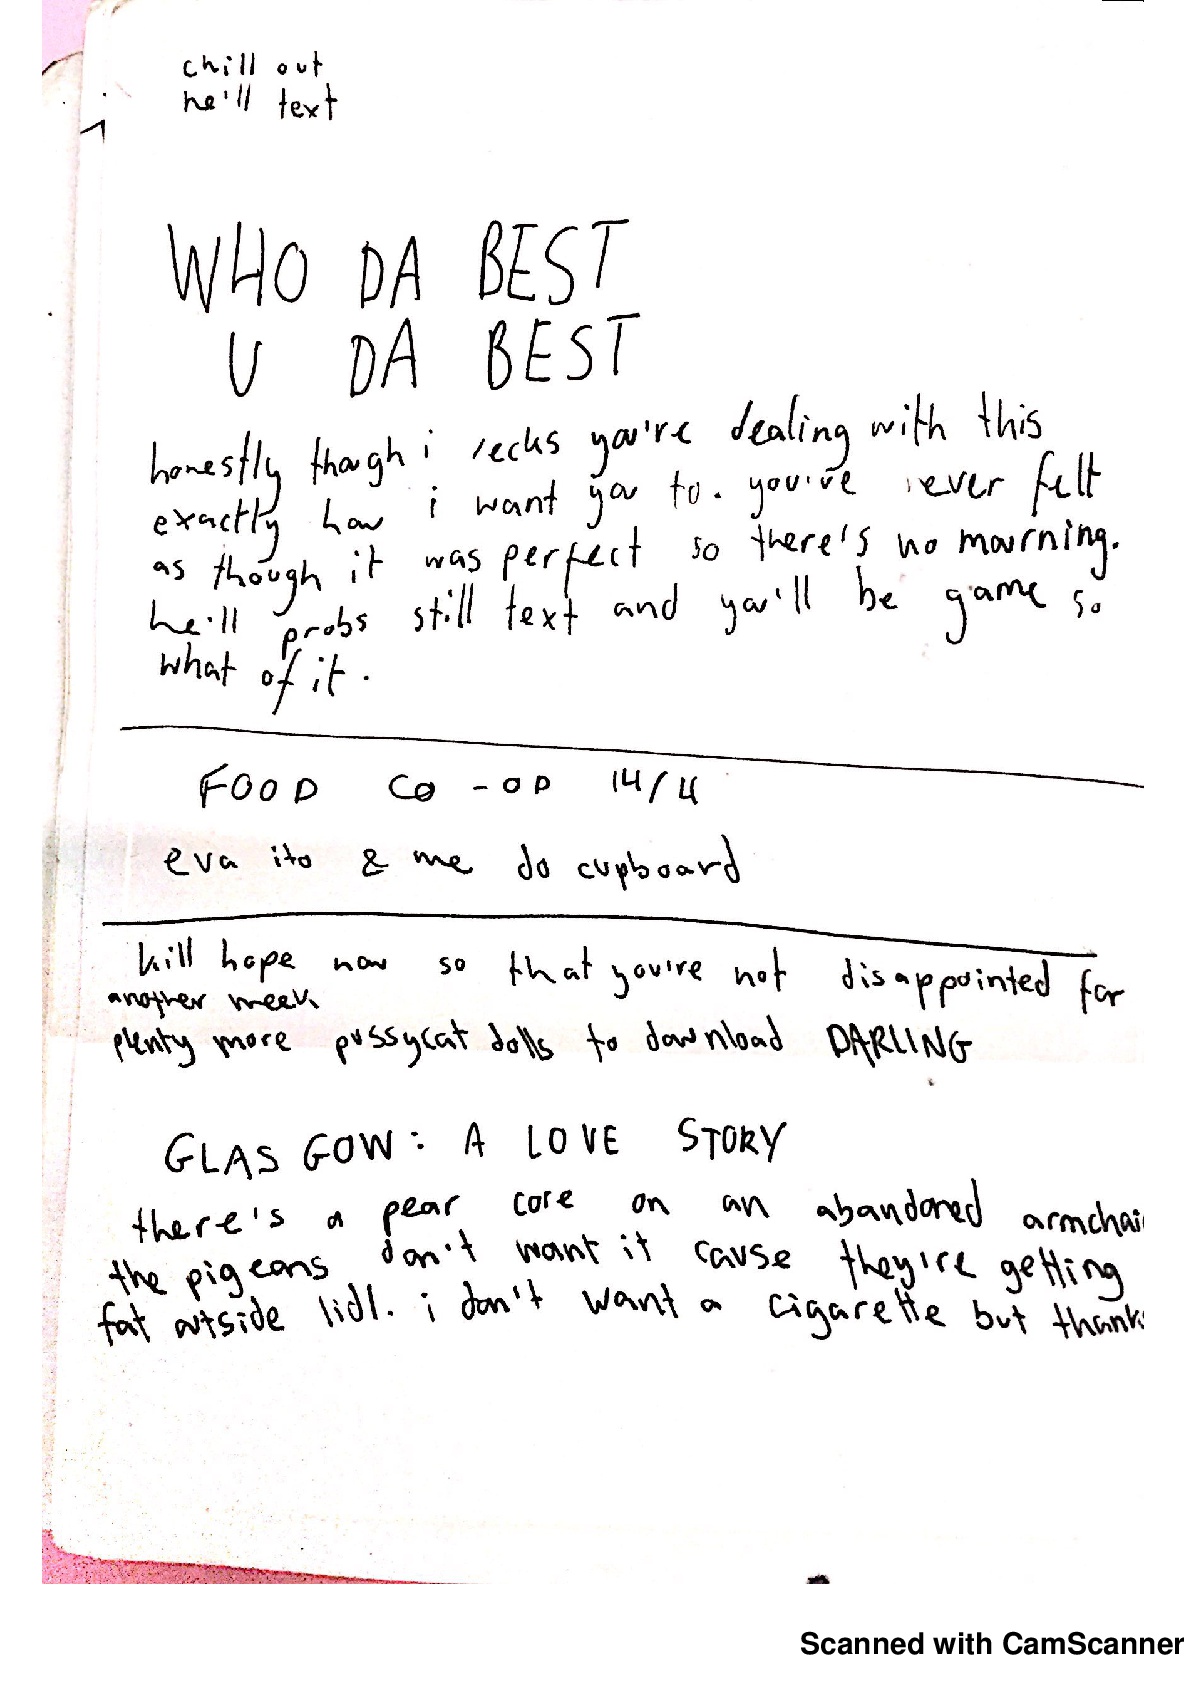 chill out
he'll text
WHO DA BEST
U DA BEST
honestly though i recks you're dealing with this
exactly how i want you to. you've never felt
as though it was perfect so there's no mourning.
he'll probs still text and you'll be game so
what of it.
FOOD CO-OP 14/4
eva ito & me do cupboard
kill hope now so that you're not disappointed for
another week
plenty more pussycat dolls to download DARLING
GLASGOW: A LOVE STORY
there's a pear core on an abandoned armchai
the pigeons don't want it cause they're getting
fat outside lidl. i don't want a cigarette but thanks
Scanned with CamScanner